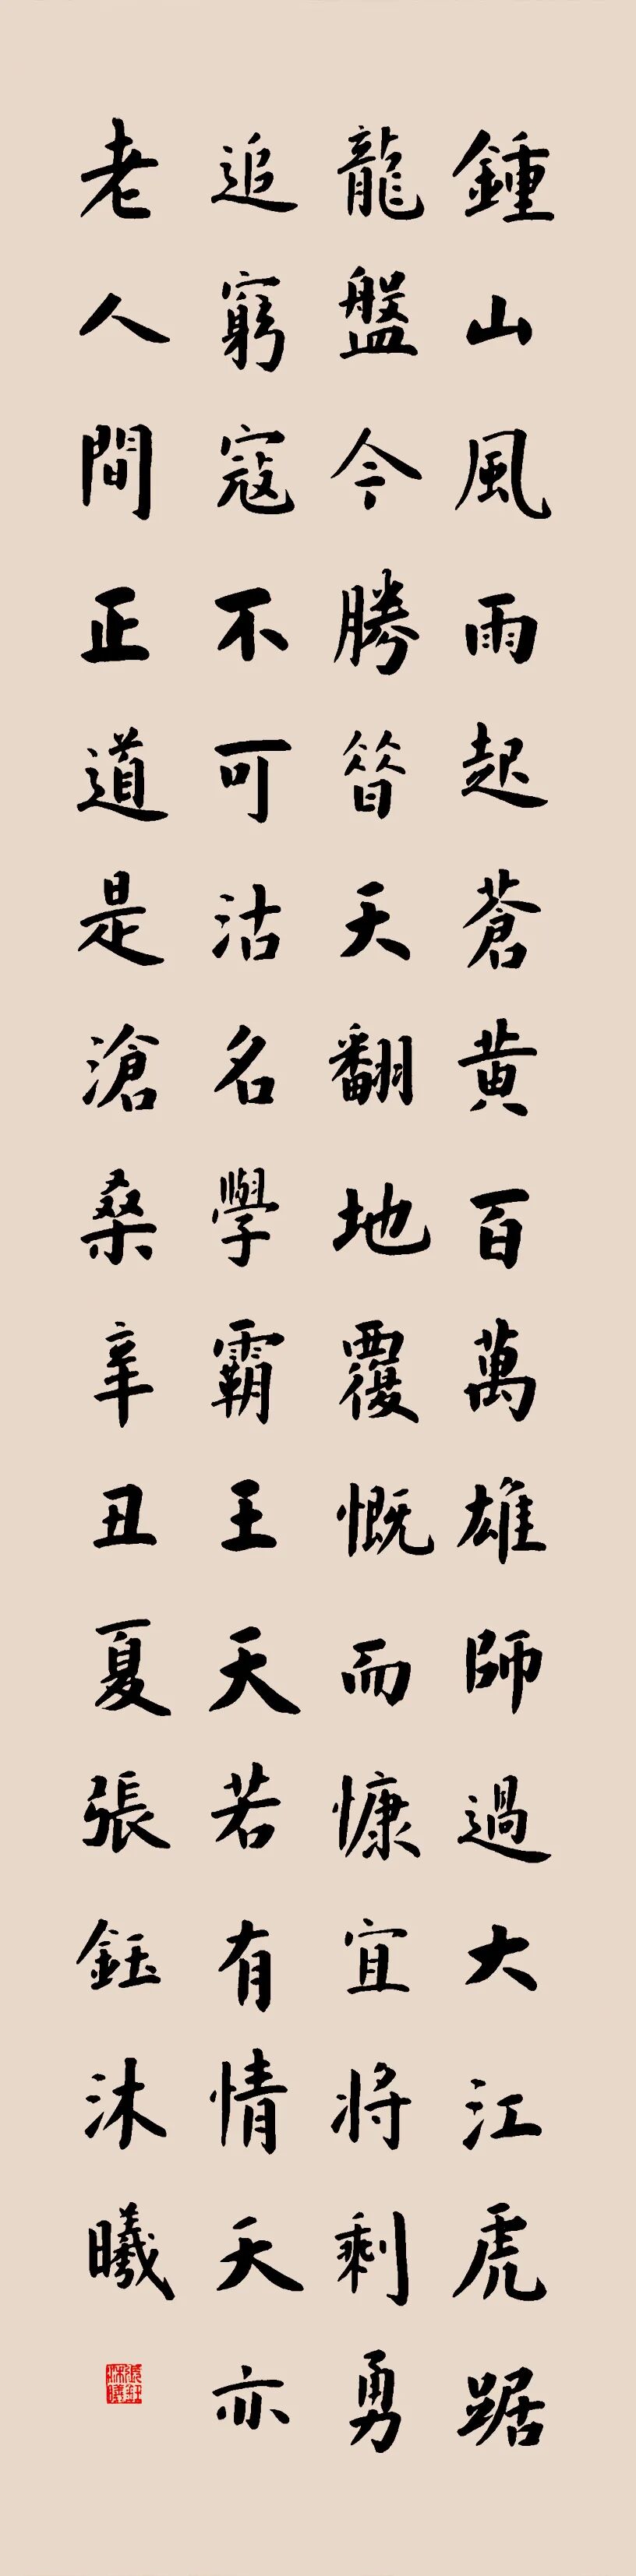 鍾山風雨起蒼黄百萬雄師過大江虎踞
龍盤今勝昝天翻地覆慨而慷宜将剩勇
追窮寇不可沽名學霸王天若有情天亦
老人間正道是滄桑辛丑夏張鈺沐曦
張鈺沐曦